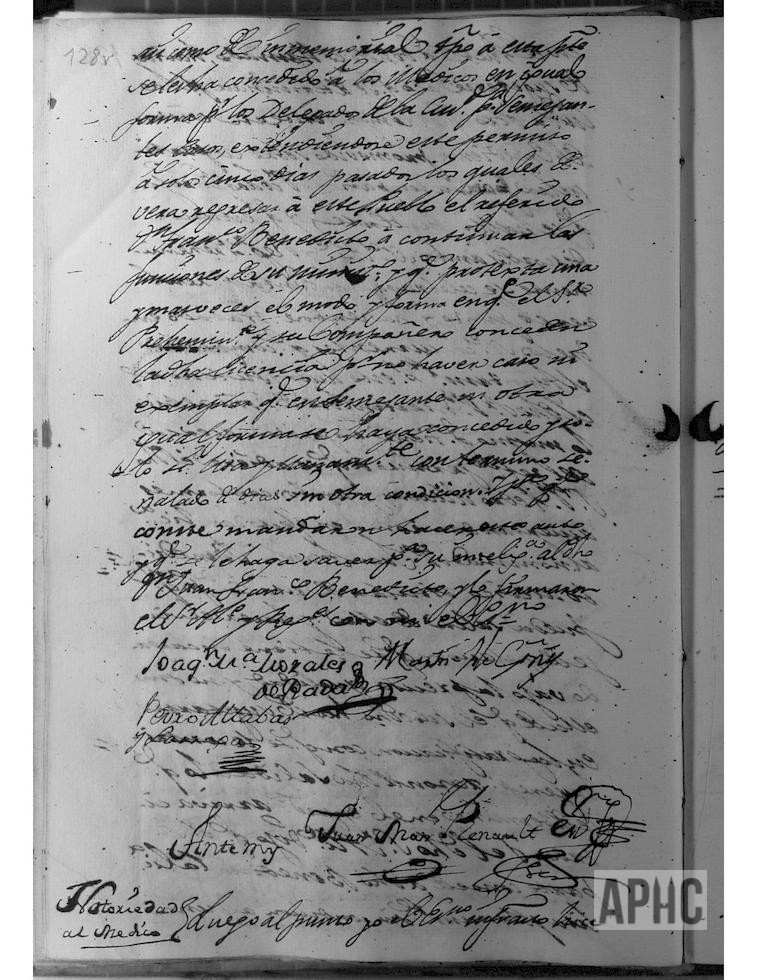 128v
asi como de immemorial tpõ á esta pte
se les ha concedido á los Medicos en igual
forma pr los Delegados de la Ciud. pa semejan-
tes casos, extendiendose este permiso
á solo cinco dias pasados los quales de-
vera regresar á este Pueblo el referido
Dn Franco Benedicto á continuar las
funciones de su minto. y qe. protexta una
y mas veces el modo y forma en qe el Sr
Preheminte y su Compañero conceden
la dha licencia pr no haver caso ni
exemplar qe. en semejante ni otra
igual forma se haya concedido y so-
lo si lisa y llanamte con termino se-
ñalado de dias sin otra condicion. Y pa qe
conste mandaron hacer este auto
y qe se le haga saver pa su intelixa al dho
Dn Juan Franco Benedicto, y lo firmaron
el Sr Alce y Regs con mi el Essno
Joaqn Ma Morales
de Rada
Pedro Altabas
Ante my
Juan Mar
Notoriedad
al Medico
Luego al punto yo el Essno infracto hice
APHC